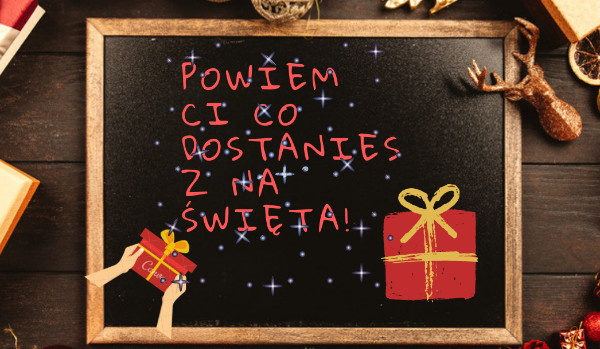 POWIEM
CI CO
DOSTANIES
Z NA
ŚWIĘTA!